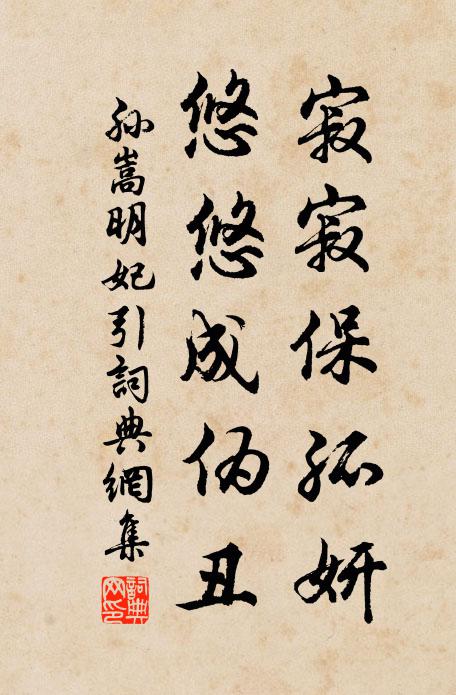 寂寂保孤妍
悠悠成伪丑
孙嵩明妃引詞典網集
詞典